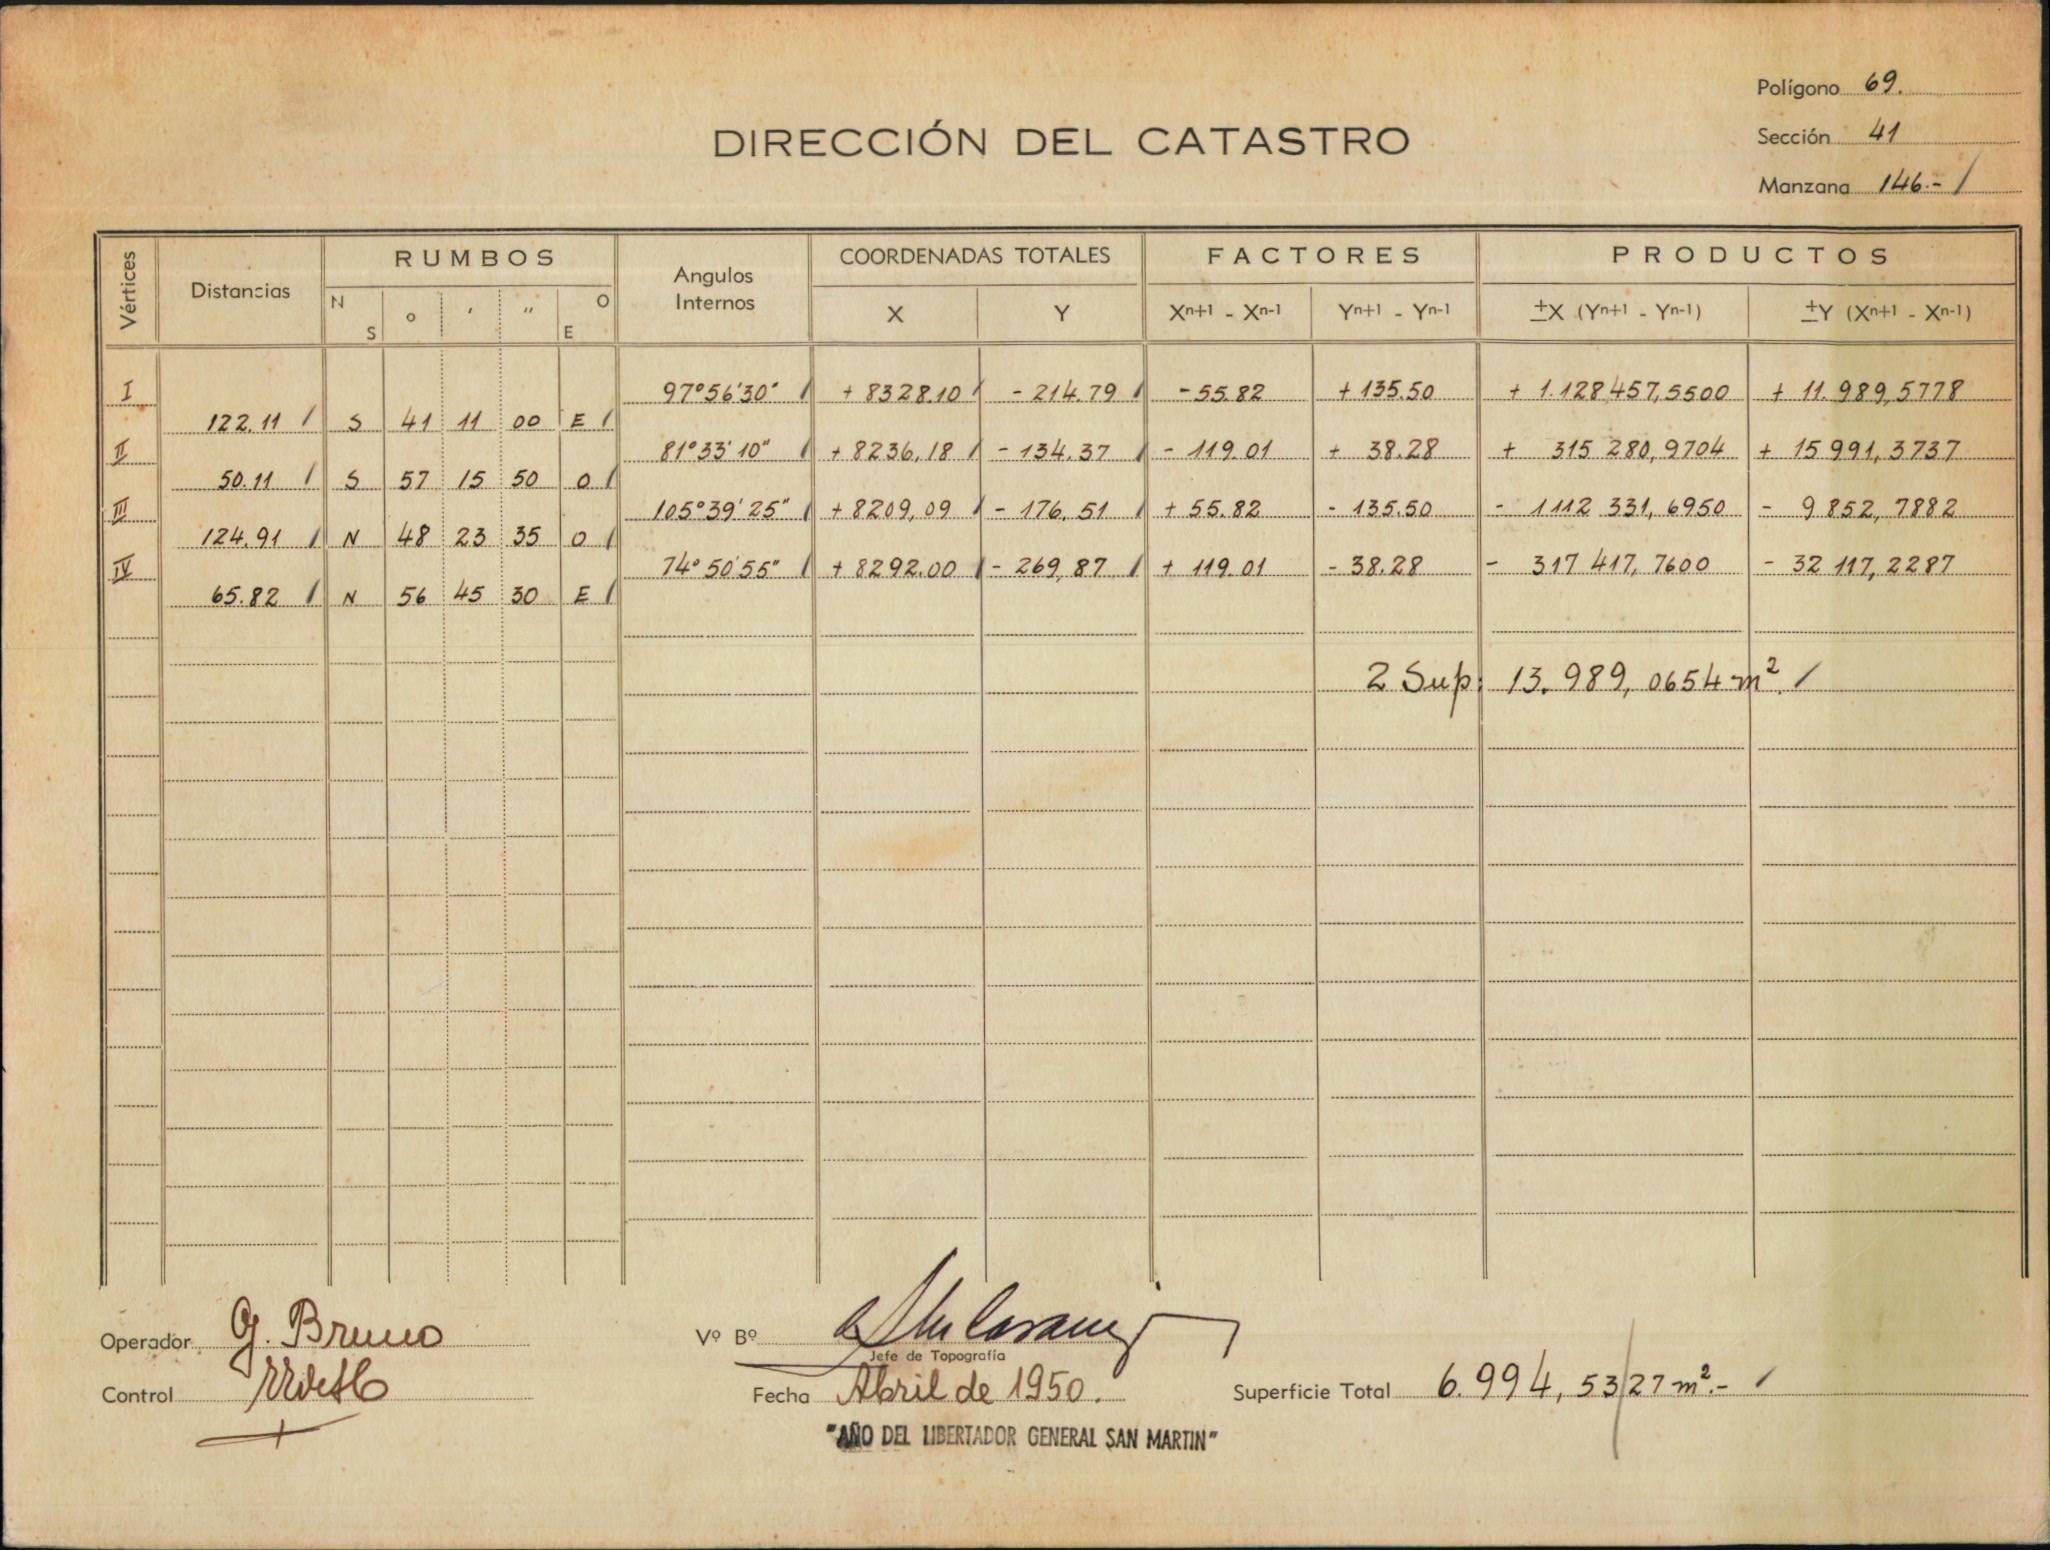 Polígono 69.
DIRECCIÓN DEL CATASTRO
Sección 41
Manzana 146.- /
Vértices Distancias RUMBOS Angulos Internos COORDENADAS TOTALES FACTORES PRODUCTOS
N S o ' '' O E X Y Xn+1 - Xn-1 Yn+1 - Yn-1 ±X (Yn+1 - Yn-1) ±Y (Xn+1 - Xn-1)
I 97°56'30" / + 8328.10 / - 214.79 / - 55.82 + 135.50 + 1.128 457,5500 + 11.989,5778
122.11 / S 41 11 00 E /
II 81°33'10" / + 8236,18 / - 134.37 / - 119.01 + 38.28 + 315 280,9704 + 15 991,3737
50.11 / S 57 15 50 O /
III 105°39'25" / + 8209,09 / - 176,51 / + 55.82 - 135.50 - 1112 331,6950 - 9 852,7882
124.91 / N 48 23 35 O /
IV 74°50'55" / + 8292.00 / - 269,87 / + 119.01 - 38.28 - 317 417,7600 - 32 117,2287
65.82 / N 56 45 30 E /
2 Sup: 13.989,0654 m2. /
Operador G. Bruno
Vº Bº
Jefe de Topografía
Control
Fecha Abril de 1950.
Superficie Total 6.994,53/27 m2.- /
"AÑO DEL LIBERTADOR GENERAL SAN MARTIN"